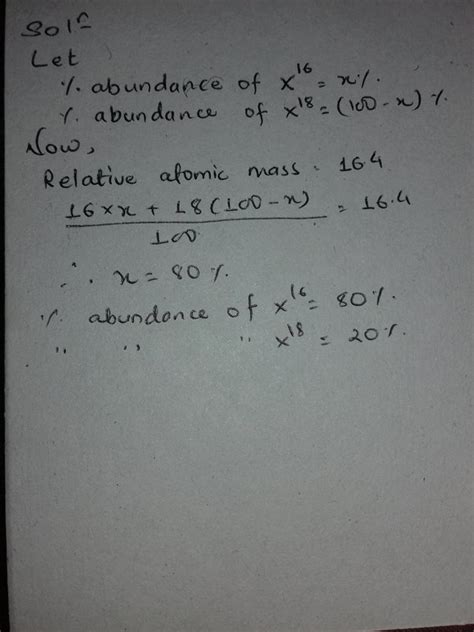 Solⁿ
Let
% abundance of x¹⁶ = x%.
% abundance of x¹⁸ = (100 - x) %
Now,
Relative atomic mass = 16.4
16 × x + 18 (100 - x) = 16.4
100
∴ x = 80 %.
% abundance of x¹⁶ = 80 %.
" " " x¹⁸ = 20 %.